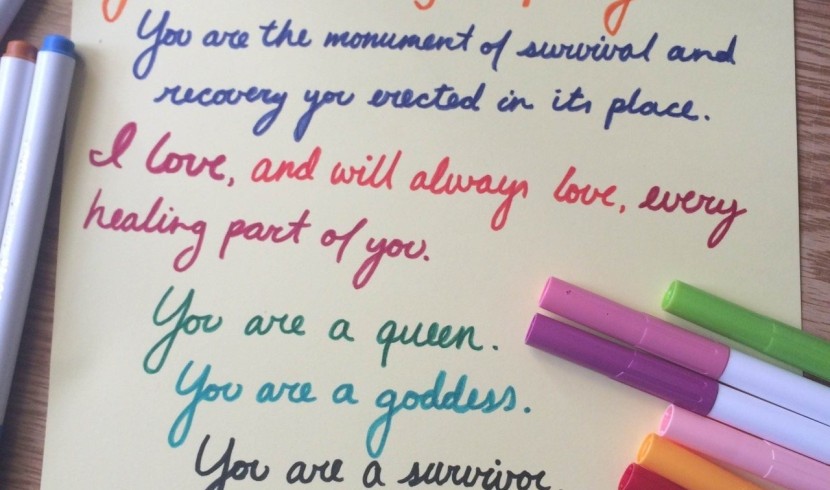 You are the monument of survival and
recovery you erected in its place.
I love, and will always love, every
healing part of you.
You are a queen.
You are a goddess.
You are a survivor.